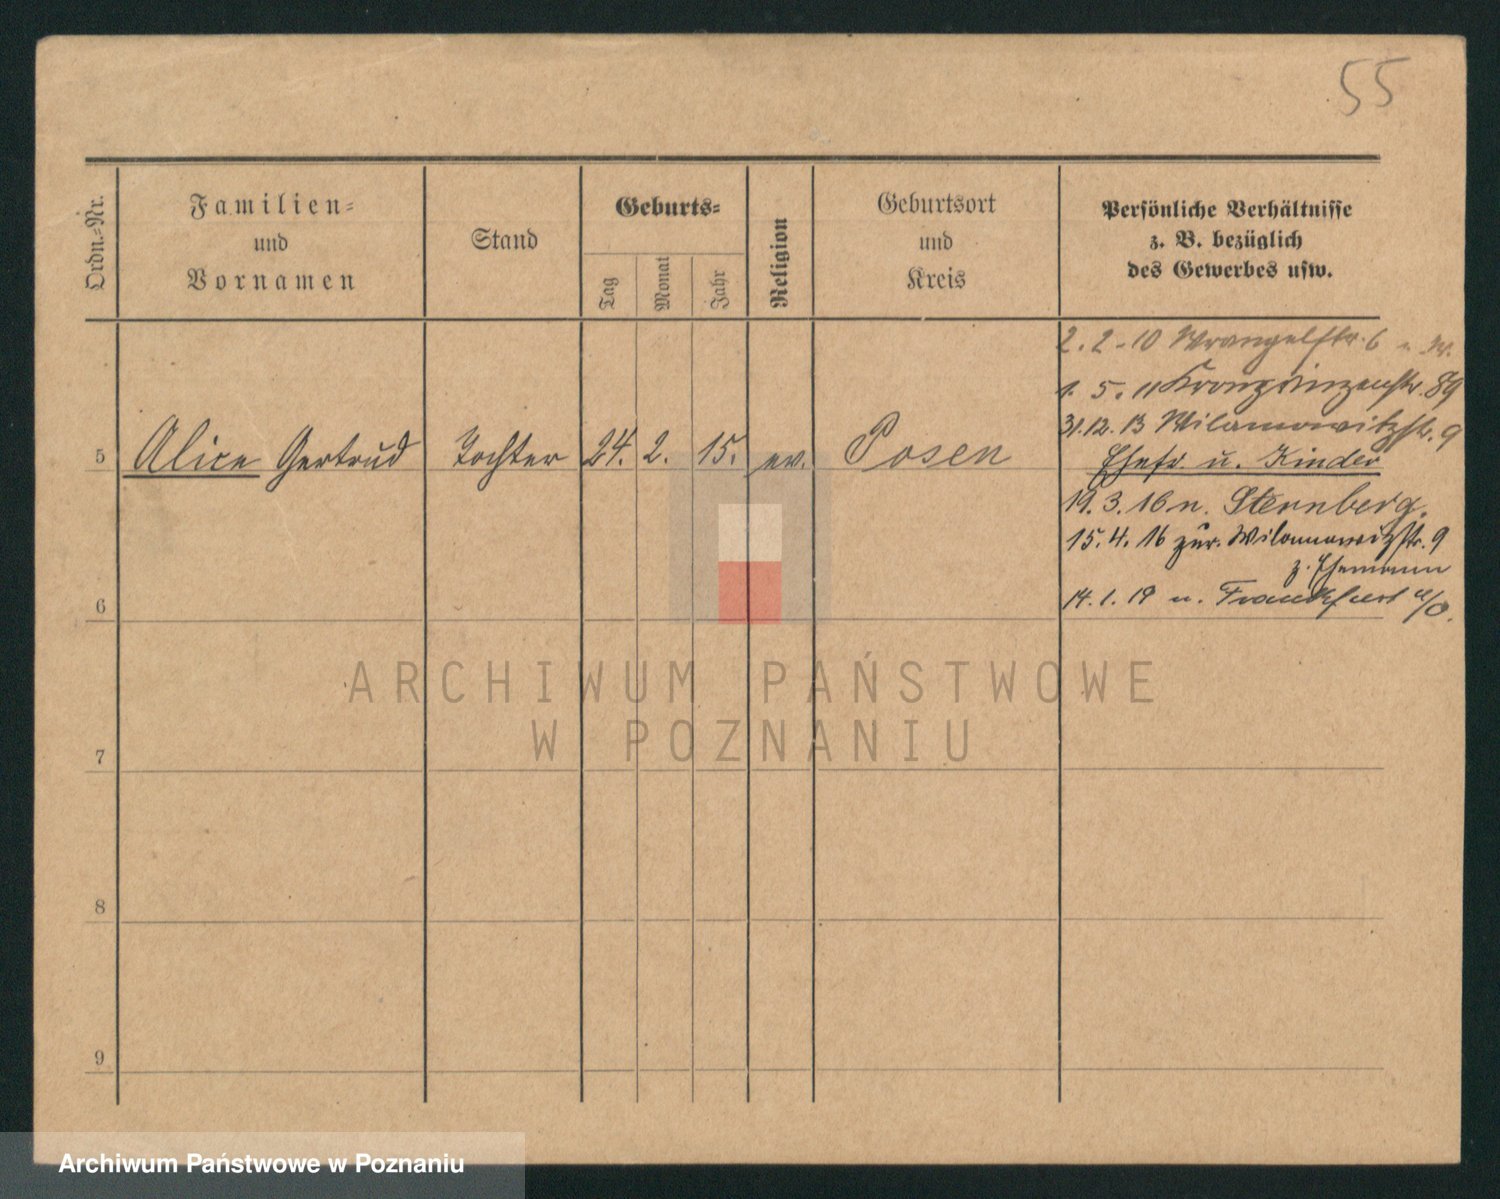 55
Ordn.-Nr.
Familien-
und
Vornamen
Stand
Geburts-
Tag
Monat
Jahr
Religion
Geburtsort
und
Kreis
Persönliche Verhältnisse
z. B. bezüglich
des Gewerbes usw.
2. 2. 10 Wrangelstr. 6
1. 5. 11 Kronprinzenstr. 89
31.12.13 Wilamowitzstr. 9
5 Alice Gertrud Tochter 24. 2. 15. ev. Posen
Ehefr. u. Kinder
19. 3. 16 n. Sternberg.
15. 4. 16 zur. Wilamowitzstr. 9
z. Ehemann
14. 1. 19 n. Frankfurt a/O.
6
7
8
9
ARCHIWUM PAŃSTWOWE
W POZNANIU
Archiwum Państwowe w Poznaniu